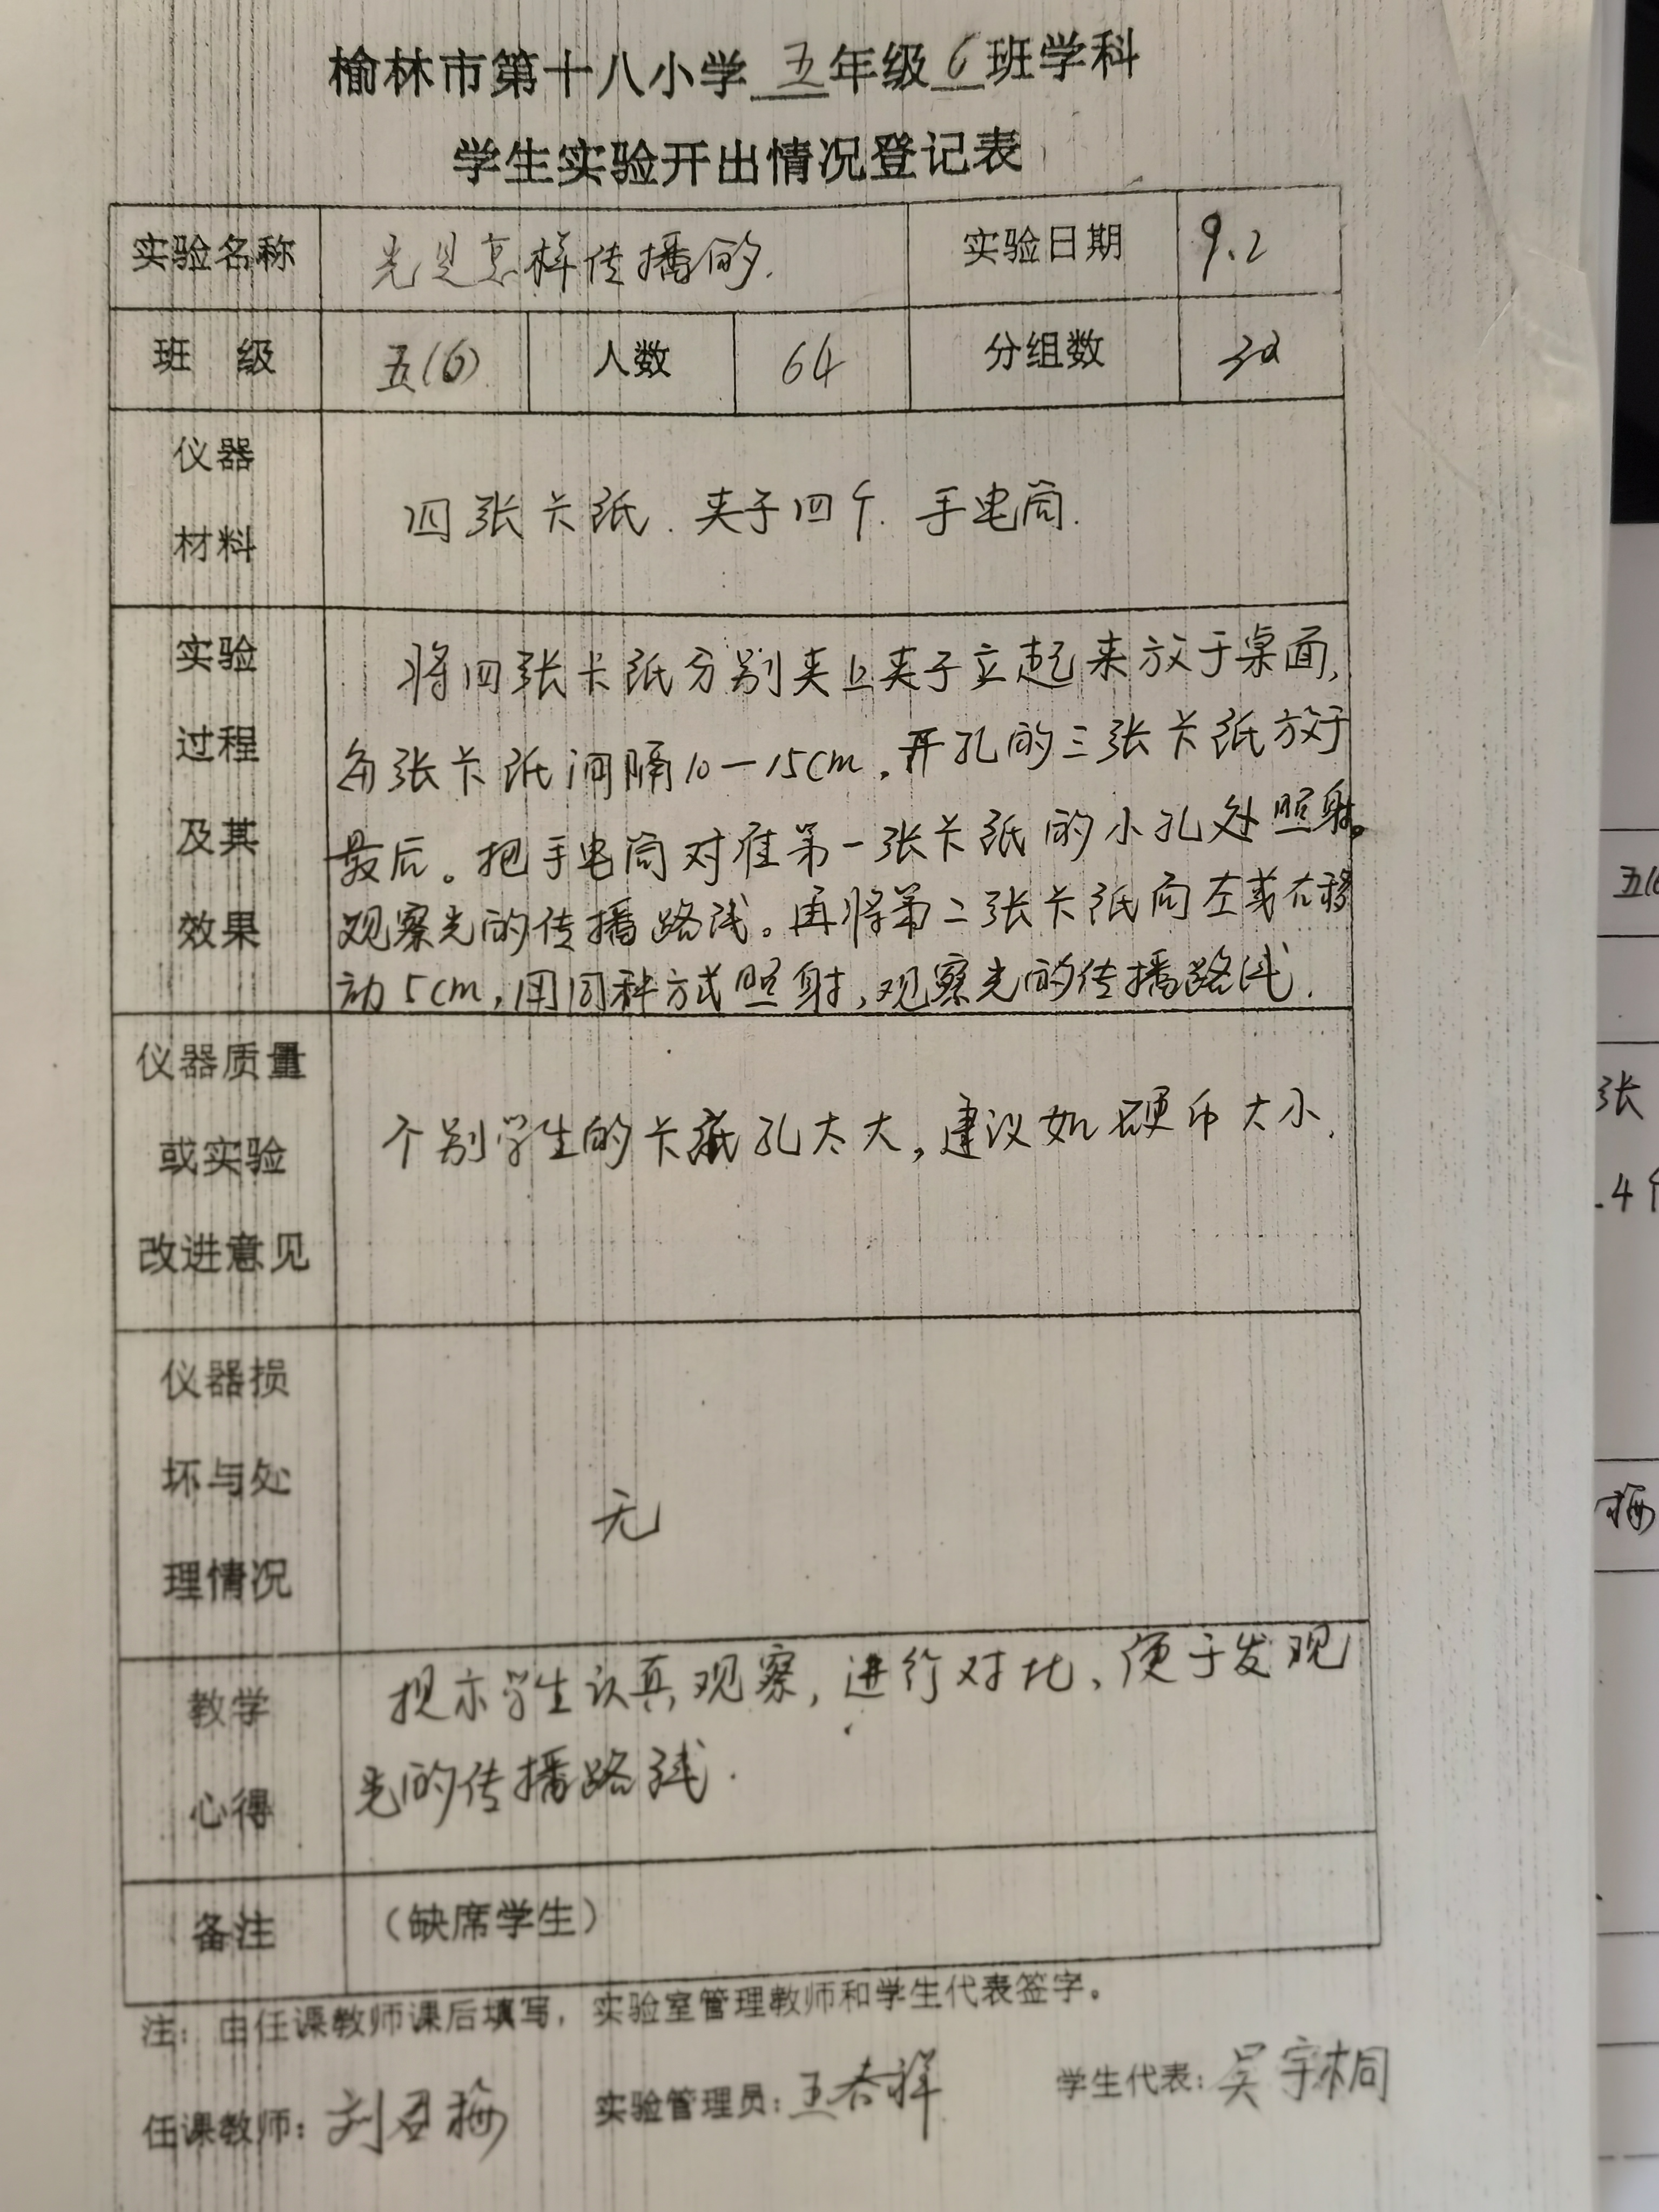 榆林市第十八小学 五 年级 6 班学科
学生实验开出情况登记表
实验名称 光是怎样传播的. 实验日期 9.2
班 级 五(6) 人数 64 分组数 32
仪器
材料
四张卡纸. 夹子四个. 手电筒.
实验
过程
及其
效果
将四张卡纸分别夹上夹子立起来放于桌面,
每张卡纸间隔10—15cm,开孔的三张卡纸放于
最后。把手电筒对准第一张卡纸的小孔处照射。
观察光的传播路线。再将第二张卡纸向左或右移
动5cm,用同种方式照射,观察光的传播路线.
仪器质量
或实验
改进意见
个别学生的卡纸孔太大,建议如硬币大小.
仪器损
坏与处
理情况
无
教学
心得
提示学生认真观察,进行对比、便于发现
光的传播路线.
备注 (缺席学生)
注：由任课教师课后填写，实验室管理教师和学生代表签字。
任课教师：刘召梅 实验管理员：王春祥 学生代表：吴宇桐
五(6
张
.4个
梅